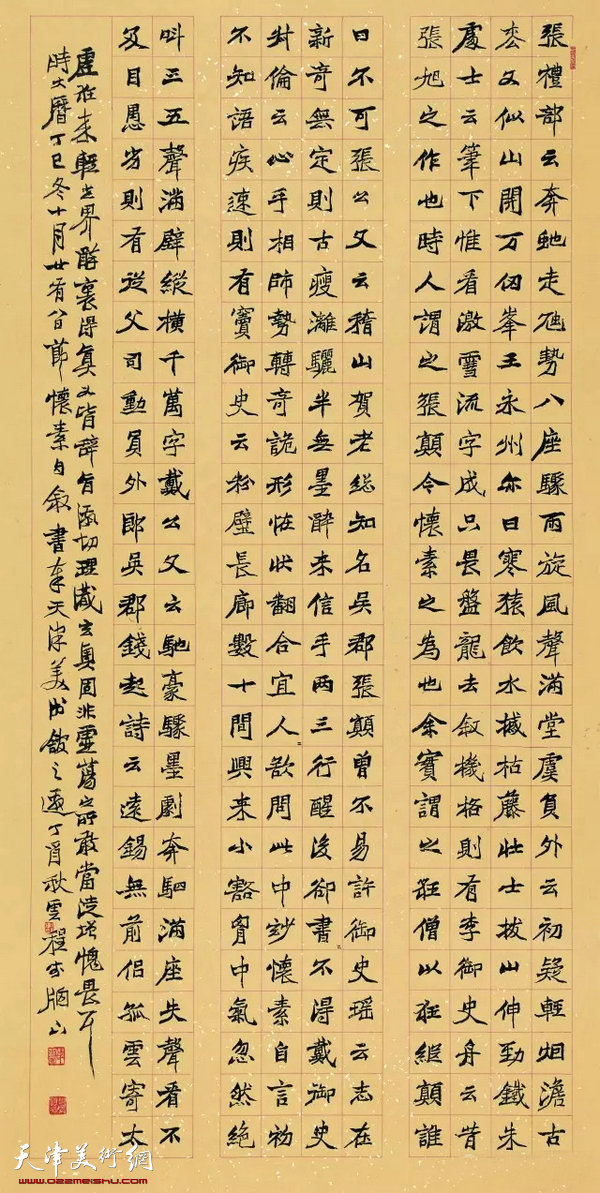 張禮部云奔虵走虺勢入座驟雨旋風聲滿堂盧員外云初疑輕烟澹古
松又似山開万仞峯王永州邕曰寒猿飲水撼枯藤壯士拔山伸勁鐵朱
處士云筆下惟看激電流字成只畏盤龍去敘機格則有李御史舟云昔
張旭之作也時人謂之張顛今懷素之為也余實謂之狂僧以狂繼顛誰
曰不可張公又云稽山賀老総知名吳郡張顛曾不易許御史瑤云志在
新奇無定則古瘦灕驪半無墨醉来信手兩三行醒後卻書書不得戴御史
叔倫云心手相師勢轉奇詭形怪狀翻合宜人人欲問此中妙懷素自言初
不知語疾速則有竇御史云粉壁長廊數十間興来小豁胷中氣忽然絕
叫三五聲滿壁縱橫千萬字戴公又云馳豪驟墨劇奔駟滿座失聲看不
及目愚劣則有從父司勳員外郎吳郡錢起詩云遠錫無前侶孤雲寄太
虛狂来輕世界醉裏得真如皆辭旨激切理識玄奧固非虛蕩之所敢當徒增愧畏耳
時大曆丁巳冬十月廿有八日節懷素自敘書奉天津美術館之邀丁酉秋雲程
天津美術網
www.022meishu.com